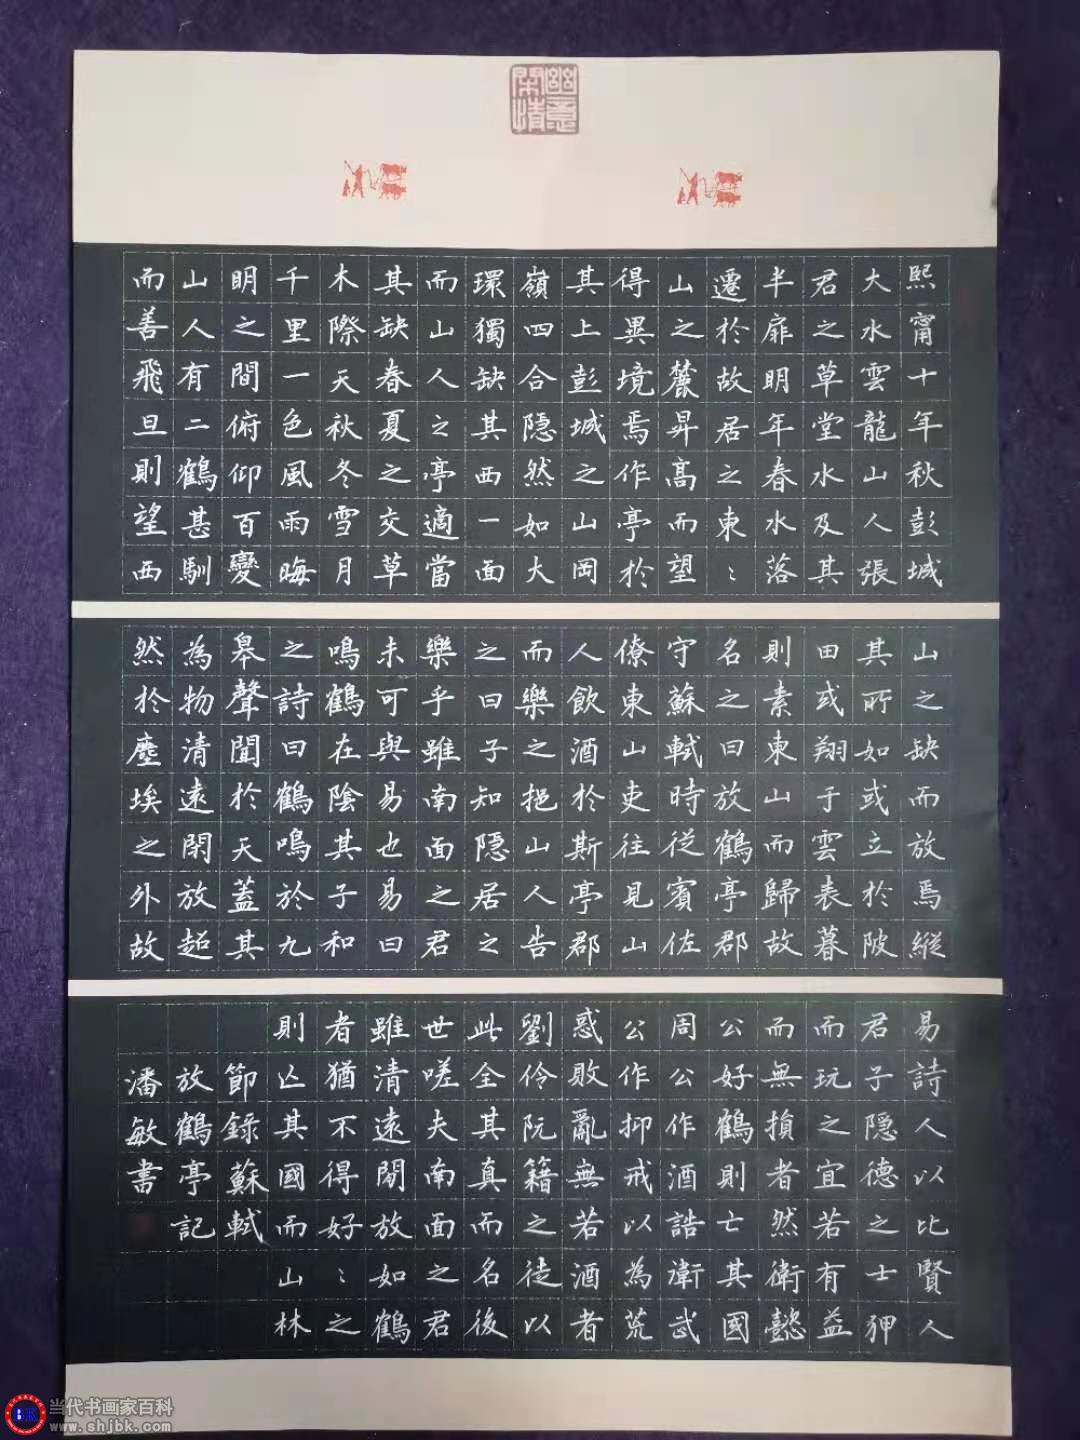 幽意
閑情
熙甯十年秋彭城
大水雲龍山人張
君之草堂水及其
半扉明年春水落
遷於故居之東〻
山之麓昇高而望
得異境焉作亭於
其上彭城之山岡
嶺四合隱然如大
環獨缺其西一面
而山人之亭適當
其缺春夏之交草
木際天秋冬雪月
千里一色風雨晦
明之間俯仰百變
山人有二鶴甚馴
而善飛旦則望西
山之缺而放焉縱
其所如或立於陂
田或翔于雲表暮
則素東山而歸故
名之曰放鶴亭郡
守蘇軾時從賓佐
僚東山吏往見山
人飲酒於斯亭郡
而樂之挹山人告
之曰子知隱居之
樂乎雖南面之君
未可與易也易曰
鳴鶴在陰其子和
之詩曰鶴鳴於九
皋聲聞於天蓋其
為物清遠閑放超
然於塵埃之外故
易詩人以比賢人
君子隱德之士狎
而玩之宜若有益
而無損者然衛懿
公好鶴則亡其國
周公作酒誥衛武
公作抑戒以為荒
惑敗亂無若酒者
劉伶阮籍之徒以
此全其真而名後
世嗟夫南面之君
雖清遠閑放如鶴
者猶不得好〻之
則亡其國而山林
節錄蘇軾
放鶴亭記
潘敏書
BK
当代书画家百科
www.shjbk.com